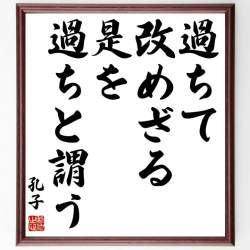 過ちて
改めざる
是を
過ちと謂う
孔子